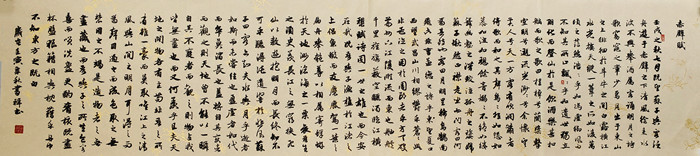 赤壁賦
壬戌之秋七月既望蘇子與客泛
舟遊於赤壁之下清風徐來水
波不興舉酒屬客誦明月之詩
歌窈窕之章少焉月出於東山之
上徘徊於斗牛之間白露橫江
水光接天縱一葦之所如凌萬
頃之茫然浩浩乎如馮虛御風而
不知其所止飄飄乎如遺世獨立
羽化而登仙於是飲酒樂甚扣
舷而歌之歌曰桂棹兮蘭槳擊
空明兮泝流光渺渺兮予懷望
美人兮天一方客有吹洞簫者
倚歌而和之其聲嗚嗚然如怨如
慕如泣如訴餘音嫋嫋不絕如縷
舞幽壑之潛蛟泣孤舟之嫠婦
蘇子愀然正襟危坐而問客曰何
為其然也客曰月明星稀烏鵲南
飛此非曹孟德之詩乎西望夏口
東望武昌山川相繆鬱乎蒼蒼
此非孟德之困於周郎者乎方其破
荊州下江陵順流而東也舳艫
千里旌旗蔽空釃酒臨江橫
槊賦詩固一世之雄也而今安
在哉況吾與子漁樵於江渚之
上侶魚蝦而友麋鹿駕一葉之
扁舟舉匏樽以相屬寄蜉蝣
於天地渺滄海之一粟哀吾生
之須臾羨長江之無窮挾飛仙
以遨遊抱明月而長終知不
可乎驟得託遺響於悲風蘇
子曰客亦知夫水與月乎逝者
如斯而未嘗往也盈虛者如彼
而卒莫消長也蓋將自其變者
而觀之則天地曾不能以一瞬
自其不變者而觀之則物與我
皆無盡也而又何羨乎且夫天
地之間物各有主苟非吾之所
有雖一毫而莫取惟江上之清
風與山間之明月耳得之而
為聲目遇之而成色取之無
禁用之不竭是造物者之無
盡藏也而吾與子之所共適客
喜而笑洗盞更酌肴核既盡
杯盤狼藉相與枕藉乎舟中
不知東方之既白
歲在壬寅